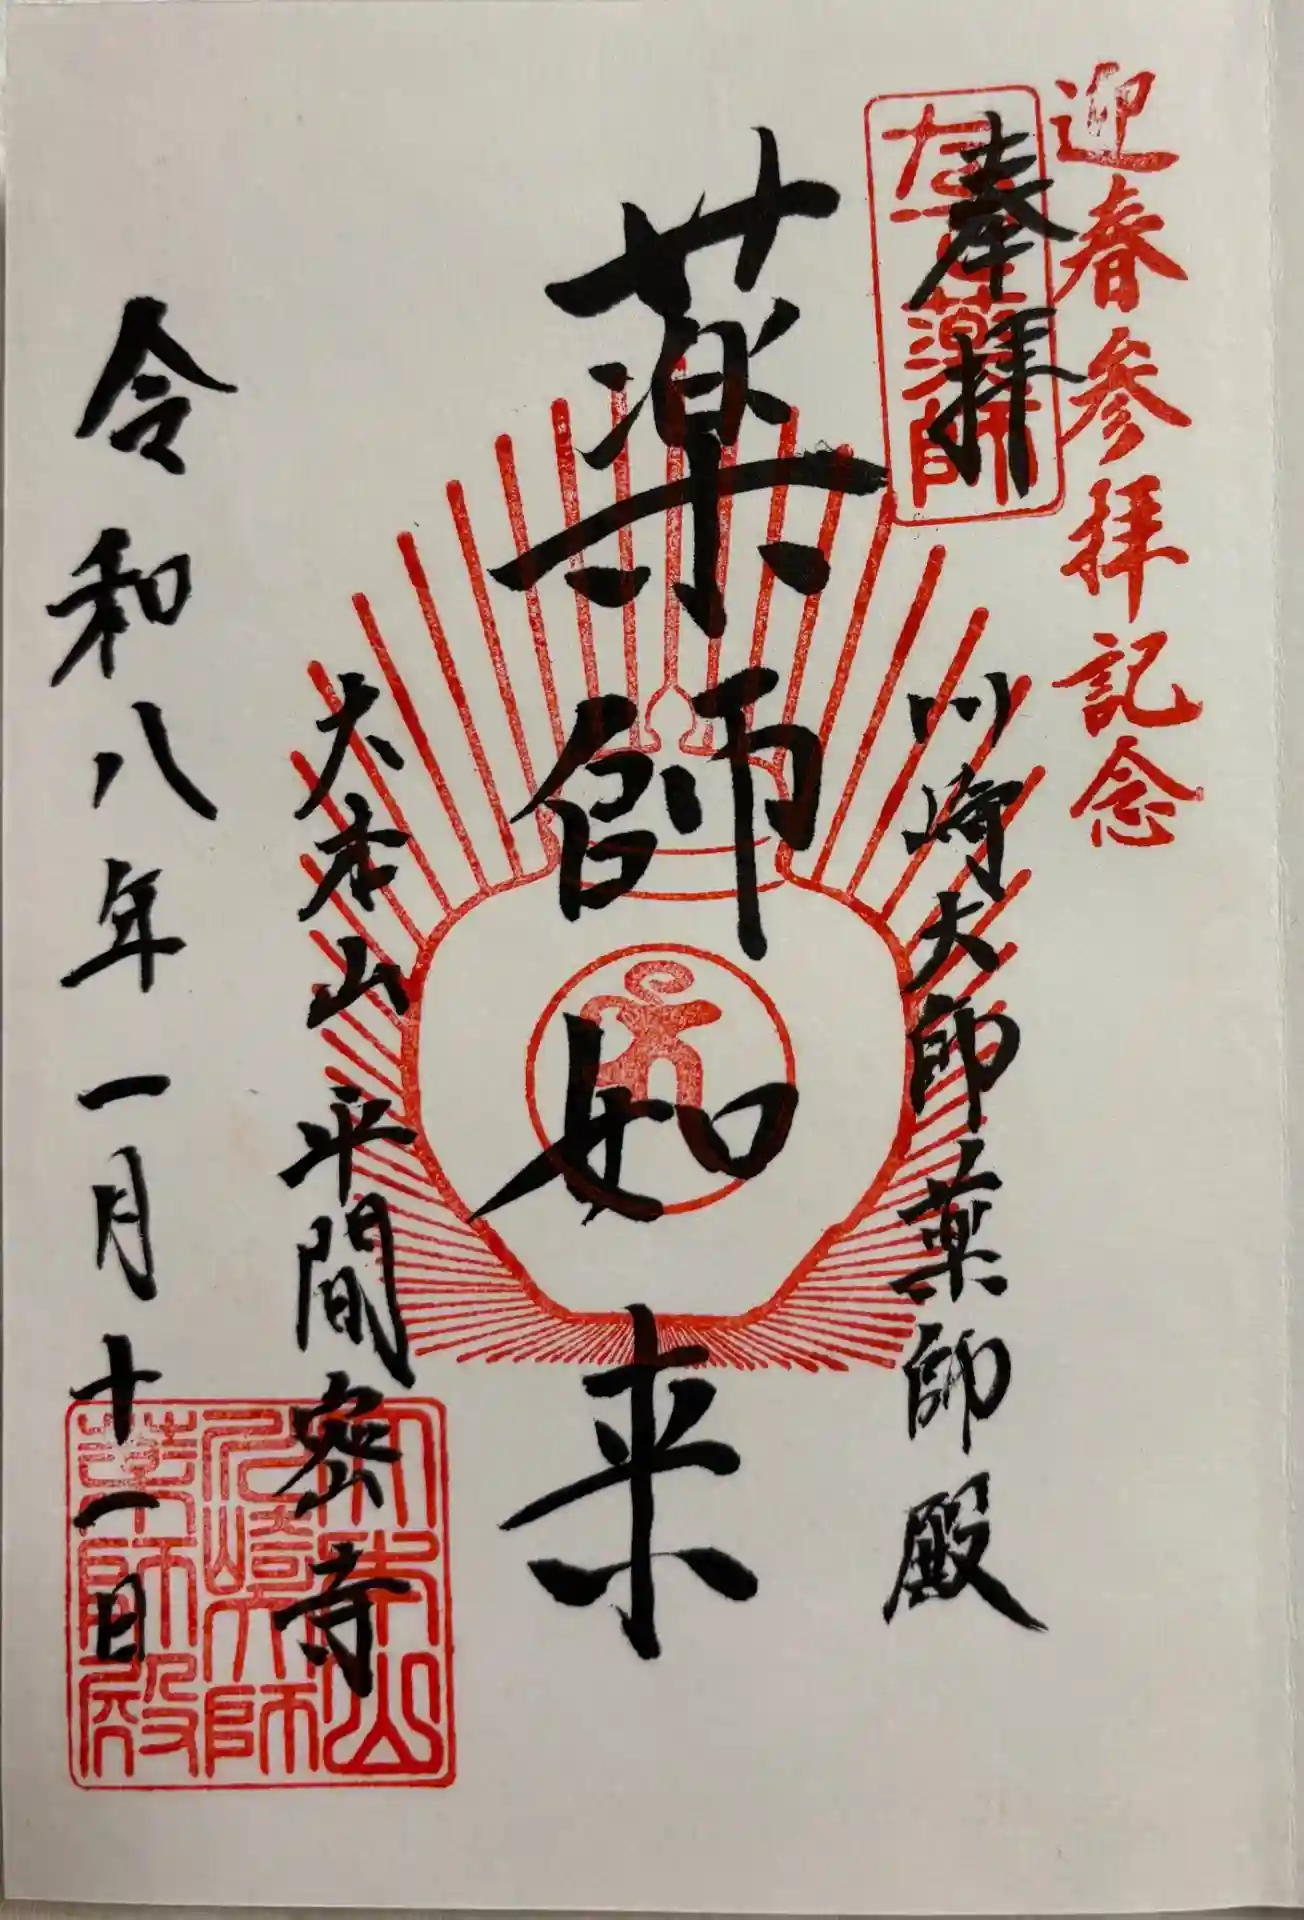 迎春参拝記念
奉拝
川崎大師薬師殿
薬師如来
大本山 平間密寺
令和八年一月十一日
大本山
川崎大師
薬師殿